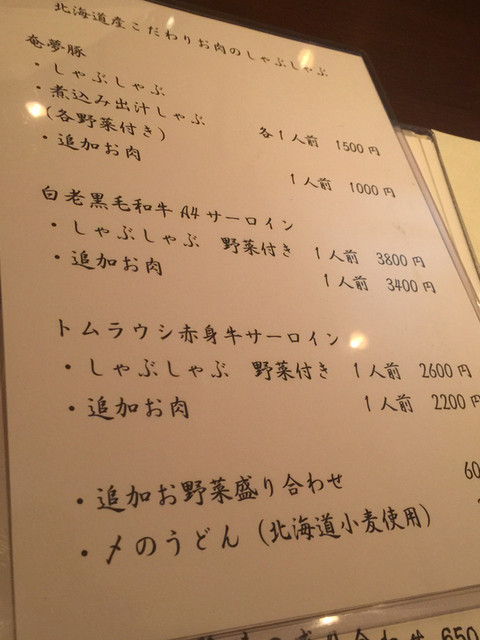 北海道産こだわりお肉のしゃぶしゃぶ
奄夢豚
・しゃぶしゃぶ
・煮込み出汁しゃぶ
(各野菜付き) 各1人前 1500円
・追加お肉 1人前 1000円
白老黒毛和牛A4サーロイン
・しゃぶしゃぶ 野菜付き 1人前 3800円
・追加お肉 1人前 3400円
トムラウシ赤身牛サーロイン
・しゃぶしゃぶ 野菜付き 1人前 2600円
・追加お肉 1人前 2200円
・追加お野菜盛り合わせ 60
・〆のうどん(北海道小麦使用)
盛り合わせ 650